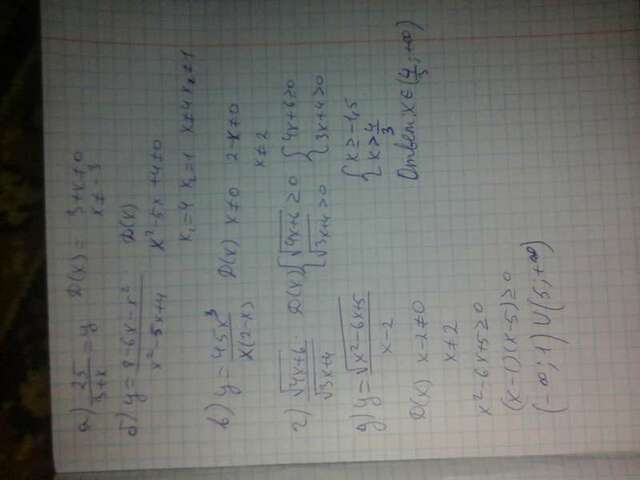 а) 25/(3+x) = y   D(x) = 3+x≠0
x≠-3
б) y = (8-6x-x²)/(x²-5x+4)   D(x)
x²-5x+4≠0
x₁=4 x₂=1 x≠4 x₂≠1
в) y = 45x³/(x(2-x))   D(x) x≠0 2-x≠0
x≠2
г) √(4x+6)/√(3x+4)   D(x) {√(4x+6) ≥0 {4x+6≥0
{√(3x+4) >0 {3x+4>0
{x≥-1,5
{x>4/3
Ответ: x∈(4/3;+∞)
д) y = √(x²-6x+5)/(x-2)
D(x) x-2≠0
x≠2
x²-6x+5≥0
(x-1)(x-5)≥0
(-∞;1)∪(5;+∞)